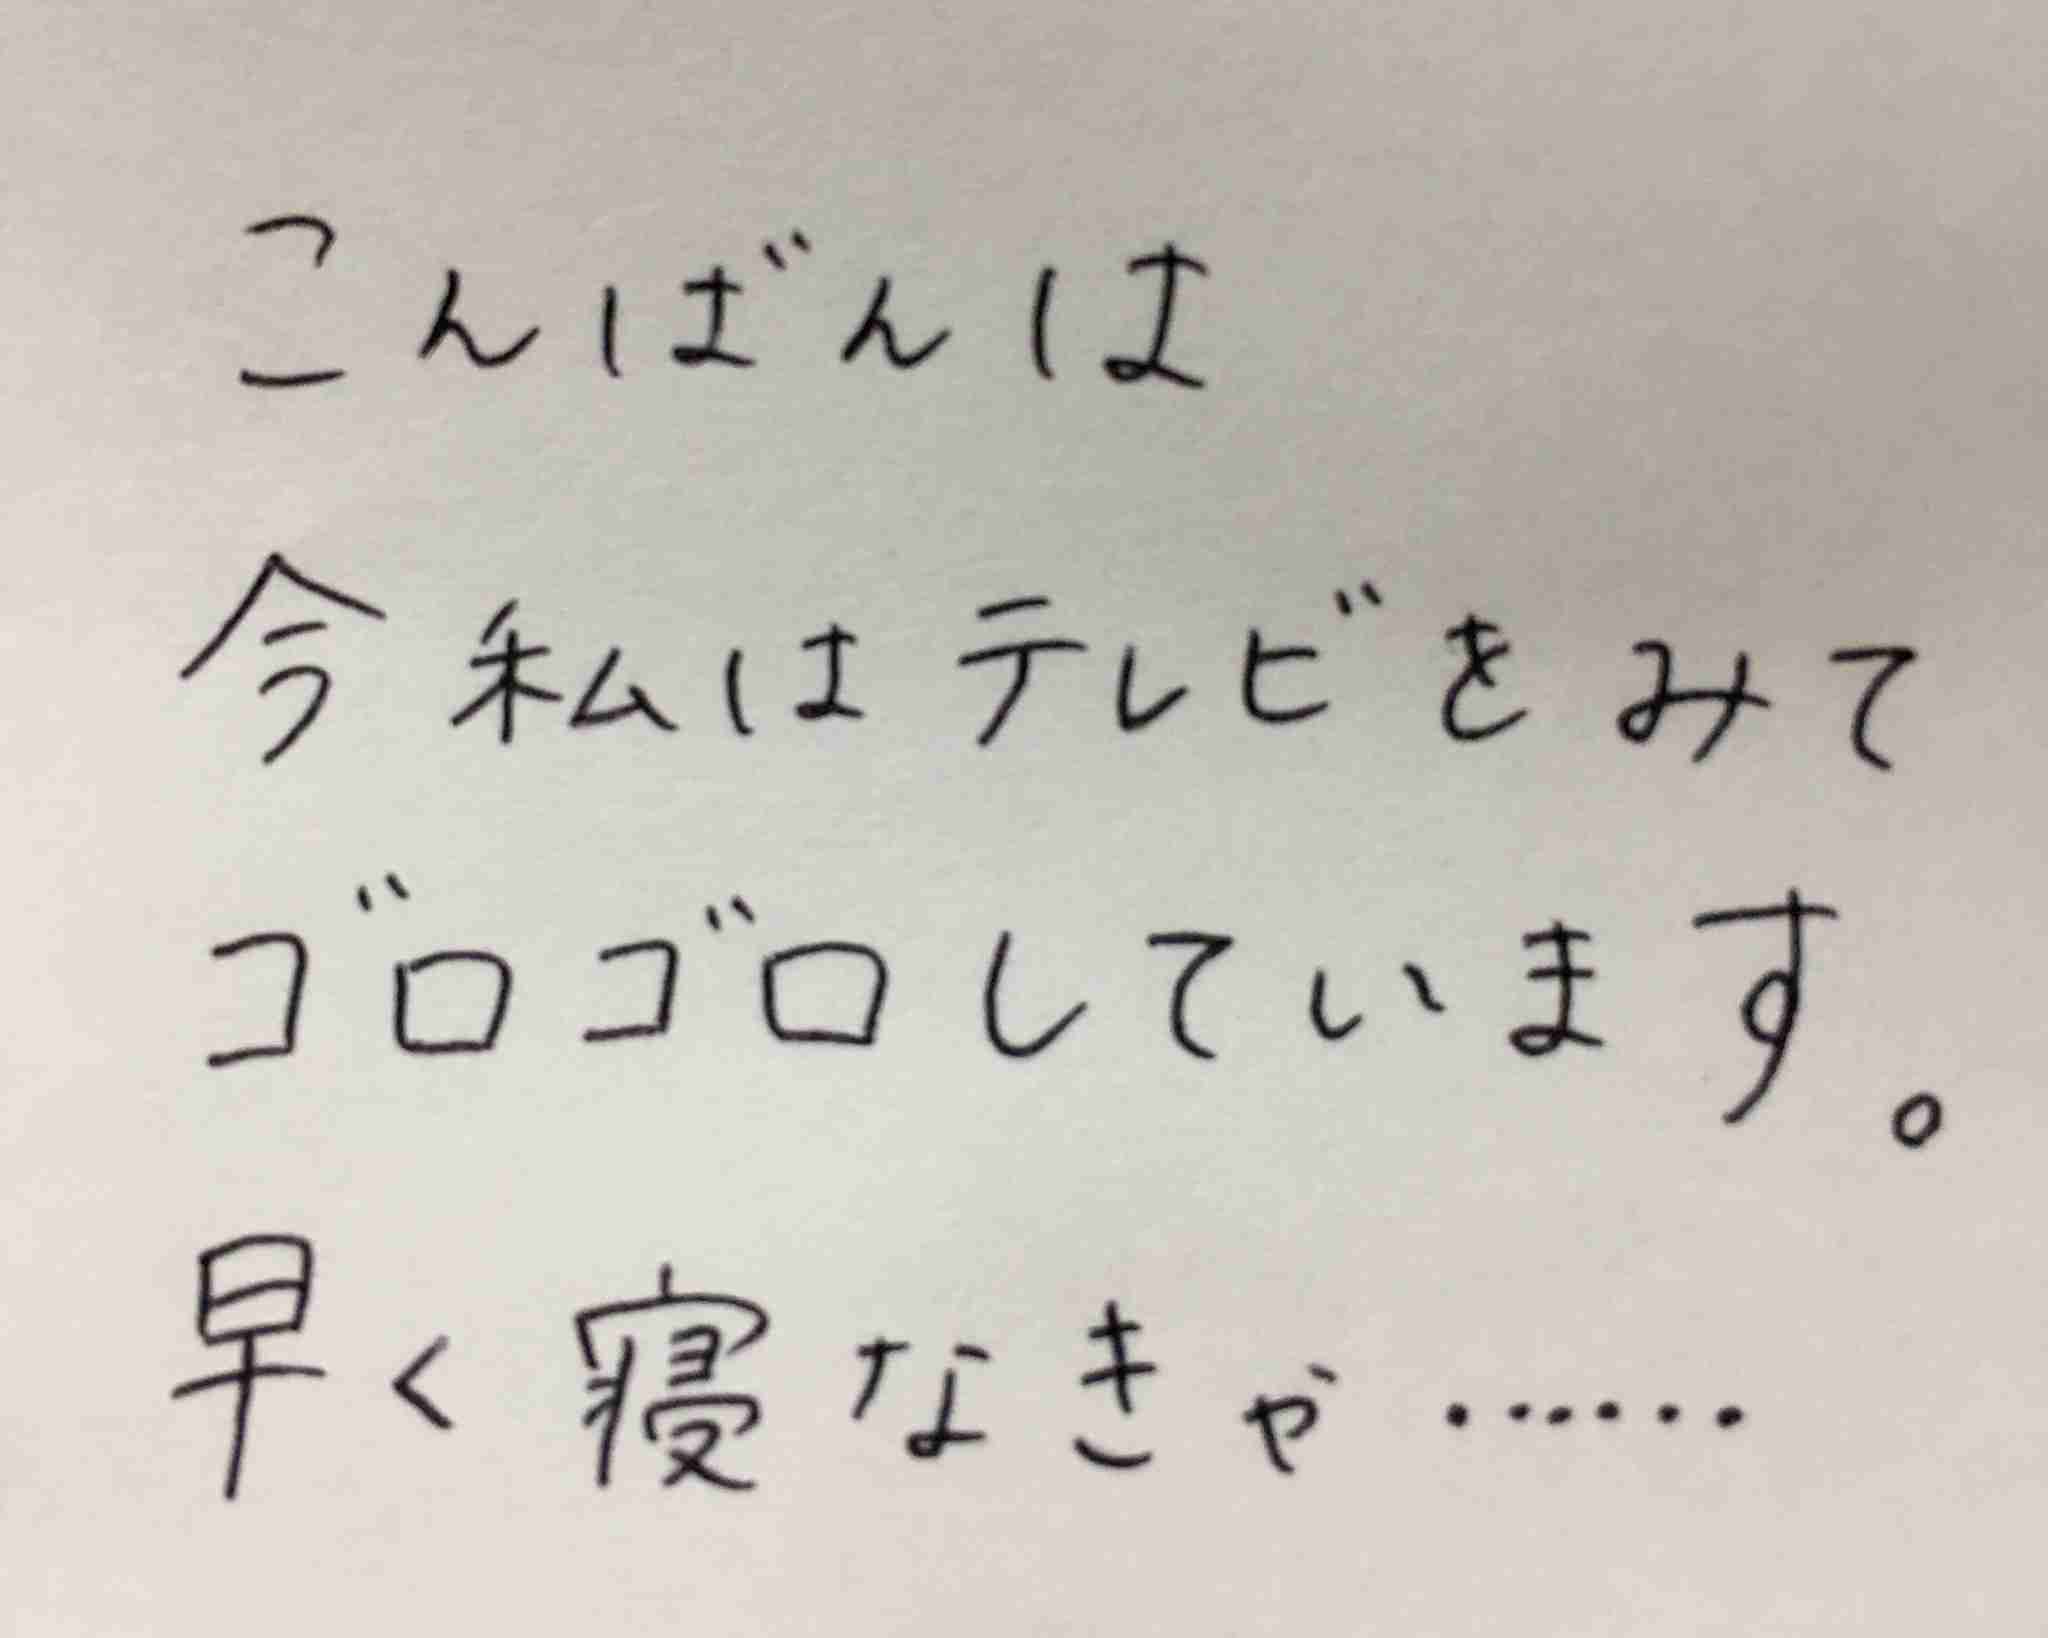 こんばんは
今私はテレビをみて
ゴロゴロしています。
早く寝なきゃ……